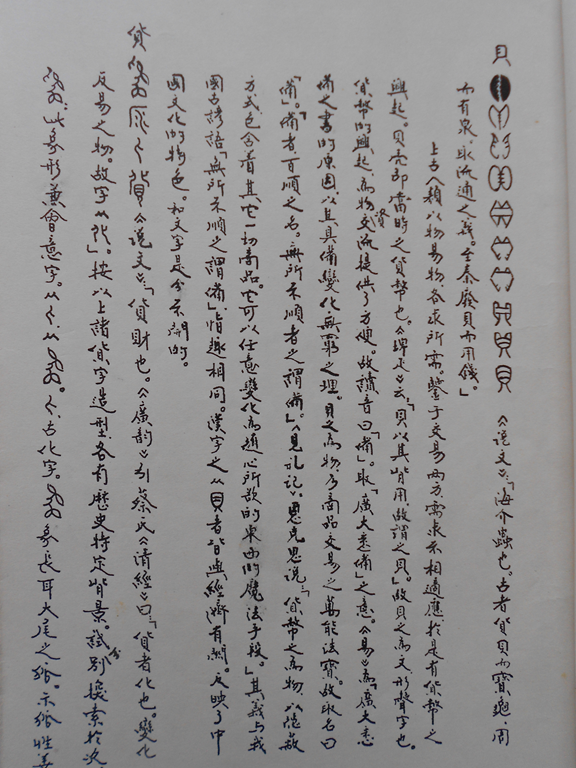 貝 《說文》：「海介蟲也。古者貨貝而寶龜，周
而有泉，取流通之義。至秦廢貝而用錢。」
上古人類以物易物各求所需。鑒于交易兩方需求不相適應，於是有貨幣之
興起。貝壳即當時之貨幣也。《埤疋》云：「貝以其背用，故謂之貝。」故貝之為文，形聲字也。
貨幣的興起，為物資交流提供了方便。故讀音曰「備」。取「廣大悉備」之意。《易》為「廣大悉
備之書的原因，以其具備變化無窮之理。貝之為物，乃商品交易之萬能法寶。故取名曰
「備」。「備者百順之名。無所不順者之謂備」。《見礼記》。恩克思說：「貨幣之為物，以隱蔽
方式包含着其它一切商品。它可以任意變化為趁心所欲的東西的魔法手段。」其義与我
國古語「無所不順之謂備」，恉趣相同。漢字之从貝者皆與經濟有關。反映了中
國文化的特色。和文字是分不開的。
貨 《說文》：「貨，財也。《廣韵》引蔡氏《清經》曰：「貨者化也。變化
反易之物。故字从化」。按以上諸貨字造型，各有歷史特定背景。試分別探索於次
此象形兼會意字。从 从 。古化字。 象長耳大尾之